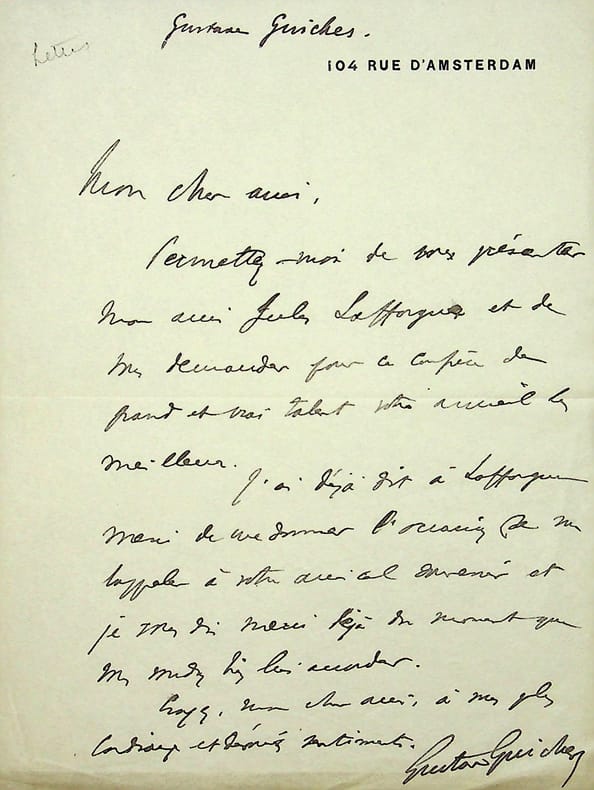 Gustave Guiches.
Lettres
104 RUE D'AMSTERDAM
Mon cher ami,
Permettez-moi de vous présenter
mon ami Jules Lafforgue et de
vous demander pour ce confrère de
grand et vrai talent votre accueil le
meilleur.
J'ai déjà dit à Lafforgue
merci de me donner l'occasion de me
rappeler à votre amical souvenir et
je vous dis merci déjà du moment que
vous voudrez bien lui accorder.
Croyez, mon cher ami, à mes plus
cordiaux et dévoués sentiments.
Gustave Guiches